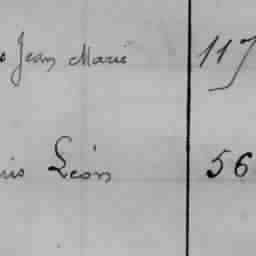 Jean Marie 117
Léon 56